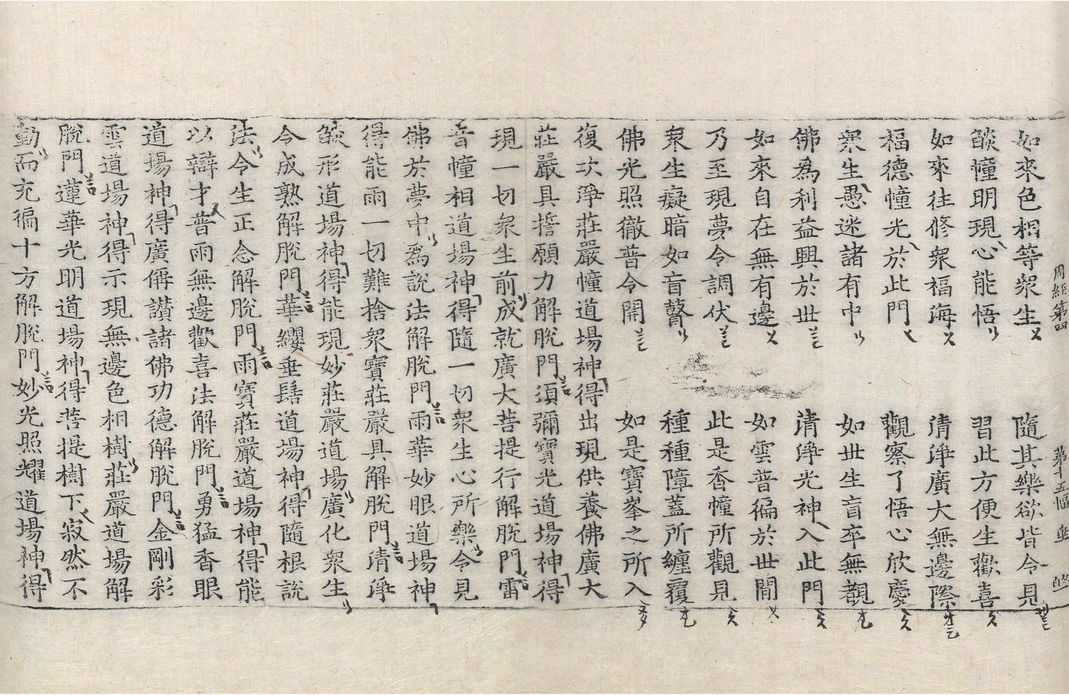 周經第四 第十五幅
如來色相等衆生 隨其樂欲皆令見
燄幢明現心能悟 習此方便生歡喜
如來往修衆福海 清淨廣大無邊際
福德幢光於此門 觀察了悟心欣慶
衆生愚迷諸有中 如世生盲卒無覩
佛爲利益興於世 清淨光神入此門
如來自在無有邊 如雲普徧於世間
乃至現夢令調伏 此是香幢所觀見
衆生癡暗如盲瞽 種種障蓋所纏覆
佛光照徹普令開 如是寶峯之所入
復次淨莊嚴幢道場神得出現供養佛廣大
莊嚴具誓願力解脫門須彌寶光道場神得
現一切衆生前成就廣大菩提行解脫門雷
音幢相道場神得隨一切衆生心所樂令見
佛於夢中爲說法解脫門雨華妙眼道場神
得能雨一切難捨衆寶莊嚴具解脫門清淨
燄形道場神得能現妙莊嚴道場廣化衆生
令成熟解脫門華纓垂髻道場神得隨根說
法令生正念解脫門雨寶莊嚴道場神得能
以辯才普雨無邊歡喜法解脫門勇猛香眼
道場神得廣偁讚諸佛功德解脫門金剛彩
雲道場神得示現無邊色相樹莊嚴道場解
脫門蓮華光明道場神得菩提樹下寂然不
動而充徧十方解脫門妙光照耀道場神得